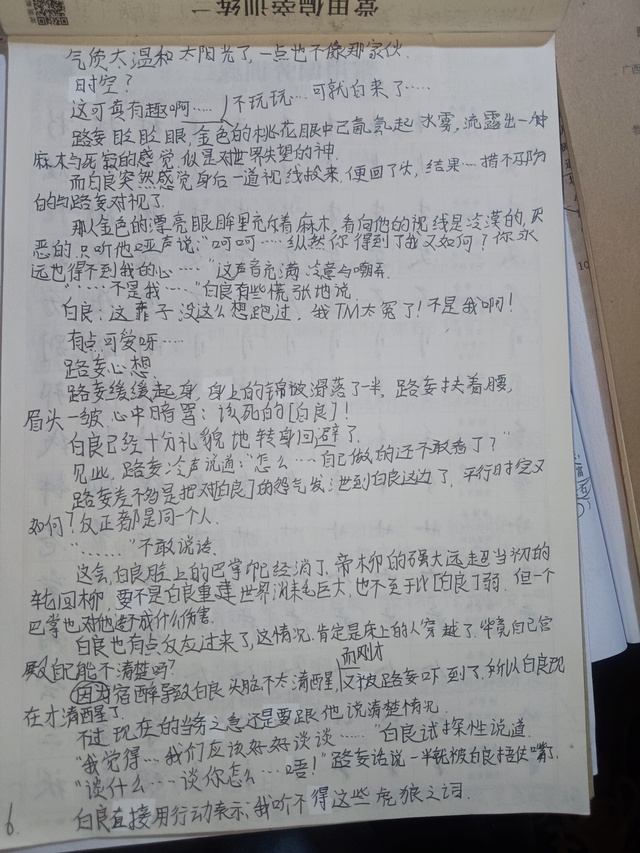 常用偏旁训练二
气质太温和太阳光了，一点也不像那家伙．
时空？
这可真有趣啊……不玩玩…可就白来了……
路妄眨眨眼，金色的桃花眼中已氤氲起水雾，流露出一种
麻木与死寂的感觉，似是对世界失望的神．
而白良突然感觉身后一道视线投来，便回了头，结果…措不及防
的与路妄对视了．
那人金色的漂亮眼眸里充斥着麻木，看向他的视线是冷漠的，厌
恶的，只听他哑声说："呵呵……纵然你得到了我又如何？你永
远也得不到我的心……"这声音充满冷意与嘲弄．
"……不是我……"白良有些慌张地说．
白良：这辈子没这么想跑过，我TM太冤了！不是我啊！
有点可爱呀……
路妄心想．
路妄缓缓起身，身上的锦被滑落了一半，路妄扶着腰，
眉头一皱，心中暗骂：该死的[白良]！
白良已经十分礼貌地转身回避了．
见此，路妄冷声说道："怎么……自己做的还不敢看了？"
路妄差不多是把对[白良]的怨气发泄到白良这边了，平行时空又
如何？反正都是同一个人．
"……"不敢说话．
这会，白良脸上的巴掌印已经消了，帝柳的强大远超当初的
轮回柳，要不是白良重建世界消耗巨大，也不至于比[白良]弱．但一个
巴掌也对他造不成什么伤害．
白良也有点反应过来了，这情况，肯定是床上的人穿越了，毕竟自己宫
殿自己能不清楚吗？
因为宿醉导致白良头脑不太清醒，而刚才又被路妄吓到了，所以白良现
在才清醒了．
不过现在的当务之急还是要跟他说清楚情况．
"我觉得…我们应该好好谈谈……"白良试探性说道．
"谈什么……谈你怎么…唔！"路妄话说一半就被白良捂住嘴了．
白良直接用行动表示：我听不得这些虎狼之词．
6.